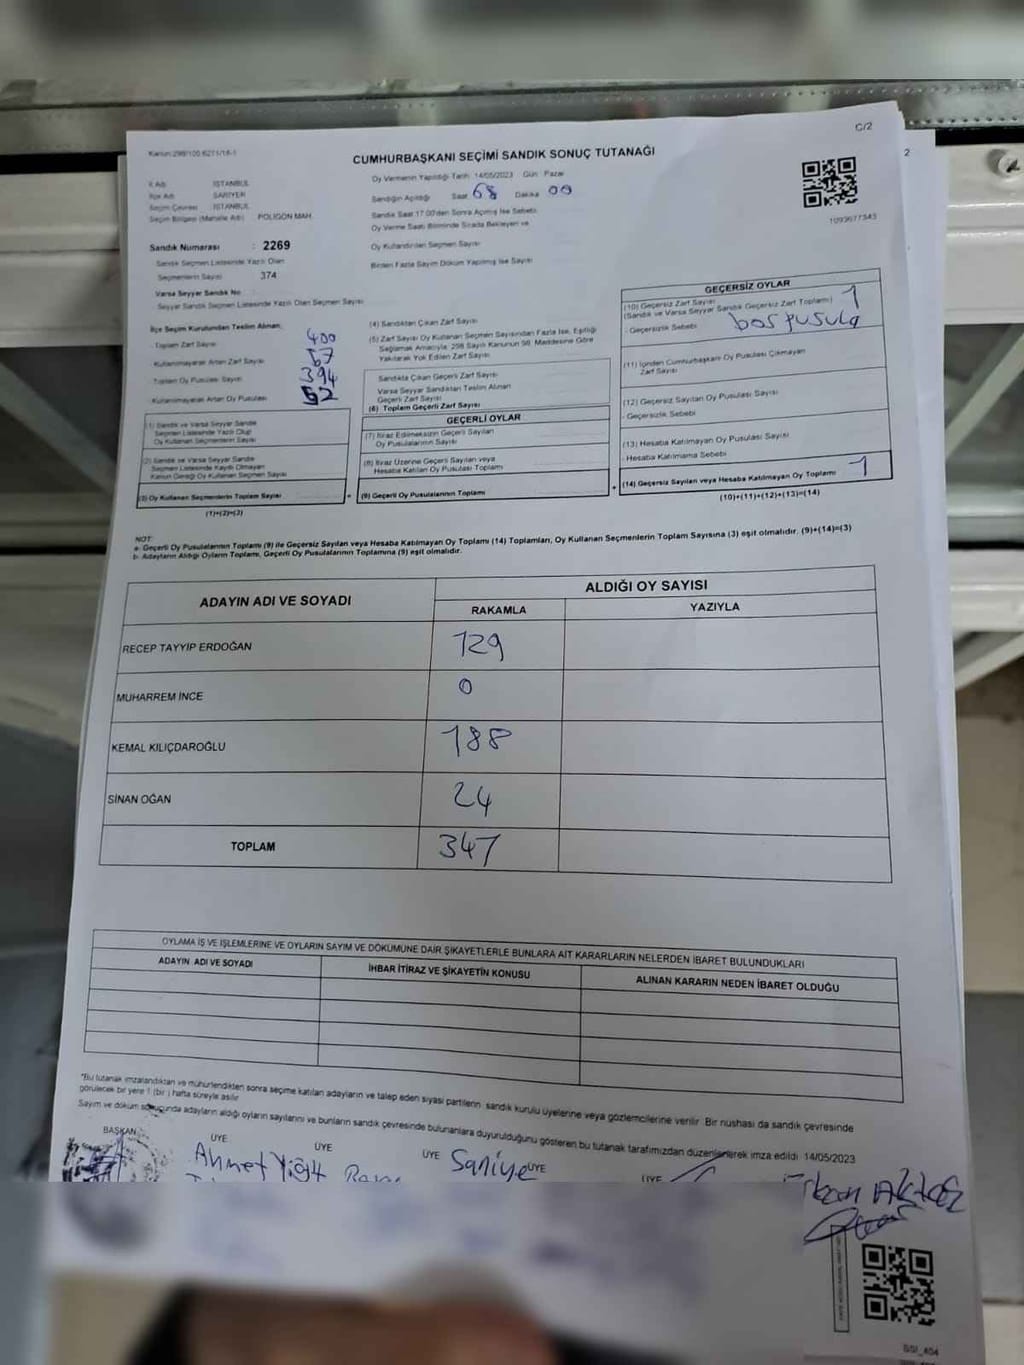 C/2
2
Kanun:298/100 6271/18-1
CUMHURBAŞKANI SEÇİMİ SANDIK SONUÇ TUTANAĞI
İl Adı : İSTANBUL
İlçe Adı : SARIYER
Seçim Çevresi : İSTANBUL
Seçim Bölgesi (Mahalle Adı) POLİGON MAH.
Oy Vermenin Yapıldığı Tarih 14/05/2023 Gün: Pazar
Sandığın Açıldığı Saat Dakika 00
Sandık Saat 17.00'den Sonra Açılmış İse Sebebi
Oy Verme Saati Bitiminde Sırada Bekleyen ve
Oy Kullandırılan Seçmen Sayısı
Birden Fazla Sayım Döküm Yapılmış İse Sayısı
1093677343
Sandık Numarası : 2269
Sandık Seçmen Listesinde Yazılı Olan
Seçmenlerin Sayısı 374
Varsa Seyyar Sandık No
Seyyar Sandık Seçmen Listesinde Yazılı Olan Seçmen Sayısı
İlçe Seçim Kurulundan Teslim Alınan;
- Toplam Zarf Sayısı 400
- Kullanılmayarak Artan Zarf Sayısı
Toplam Oy Pusulası Sayısı 394
- Kullanılmayarak Artan Oy Pusulası
(1) Sandık ve Varsa Seyyar Sandık
Seçmen Listesinde Yazılı Olup
Oy Kullanan Seçmenlerin Sayısı
(2) Sandık ve Varsa Seyyar Sandık
Seçmen Listesinde Kayıtlı Olmayan
Kanun Gereği Oy Kullanan Seçmen Sayısı
(3) Oy Kullanan Seçmenlerin Toplam Sayısı
(1)+(2)=(3)
(4) Sandıktan Çıkan Zarf Sayısı
(5) Zarf Sayısı Oy Kullanan Seçmen Sayısından Fazla İse, Eşitliği
Sağlamak Amacıyla; 298 Sayılı Kanunun 98. Maddesine Göre
Yakılarak Yok Edilen Zarf Sayısı
Sandıkta Çıkan Geçerli Zarf Sayısı
Varsa Seyyar Sandıktan Teslim Alınan
Geçerli Zarf Sayısı
(6) Toplam Geçerli Zarf Sayısı
GEÇERLİ OYLAR
(7) İtiraz Edilmeksizin Geçerli Sayılan
Oy Pusulalarının Sayısı
(8) İtiraz Üzerine Geçerli Sayılan veya
Hesaba Katılan Oy Pusulası Toplamı
= (9) Geçerli Oy Pusulalarının Toplamı
GEÇERSİZ OYLAR
(10) Geçersiz Zarf Sayısı
(Sandık ve Varsa Seyyar Sandık Geçersiz Zarf Toplamı) 1
- Geçersizlik Sebebi boş pusula
(11) İçinden Cumhurbaşkanı Oy Pusulası Çıkmayan
Zarf Sayısı
(12) Geçersiz Sayılan Oy Pusulası Sayısı
- Geçersizlik Sebebi
(13) Hesaba Katılmayan Oy Pusulası Sayısı
- Hesaba Katılmama Sebebi
+ (14) Geçersiz Sayılan veya Hesaba Katılmayan Oy Toplamı 1
(10)+(11)+(12)+(13)=(14)
NOT:
a- Geçerli Oy Pusulalarının Toplamı (9) ile Geçersiz Sayılan veya Hesaba Katılmayan Oy Toplamı (14) Toplamları, Oy Kullanan Seçmenlerin Toplam Sayısına (3) eşit olmalıdır. (9)+(14)=(3)
b- Adayların Aldığı Oyların Toplamı, Geçerli Oy Pusulalarının Toplamına (9) eşit olmalıdır.
ADAYIN ADI VE SOYADI
ALDIĞI OY SAYISI
RAKAMLA YAZIYLA
RECEP TAYYIP ERDOĞAN 129
MUHARREM İNCE 0
KEMAL KILIÇDAROĞLU 188
SİNAN OĞAN 24
TOPLAM 347
OYLAMA İŞ VE İŞLEMLERİNE VE OYLARIN SAYIM VE DÖKÜMÜNE DAİR ŞİKAYETLERLE BUNLARA AİT KARARLARIN NELERDEN İBARET BULUNDUKLARI
ADAYIN ADI VE SOYADI İHBAR İTİRAZ VE ŞİKAYETİN KONUSU ALINAN KARARIN NEDEN İBARET OLDUĞU
*Bu tutanak imzalandıktan ve mühürlendikten sonra seçime katılan adayların ve talep eden siyasi partilerin sandık kurulu üyelerine veya gözlemcilerine verilir. Bir nüshası da sandık çevresinde
görülecek bir yere 1 (bir ) hafta süreyle asılır
Sayım ve döküm sonucunda adayların aldığı oyların sayılarını ve bunların sandık çevresinde bulunanlara duyurulduğunu gösteren bu tutanak tarafımızdan düzenlenerek imza edildi 14/05/2023
BAŞKAN ÜYE ÜYE ÜYE ÜYE ÜYE
Ahmet Yiğit Saniye
SSI_404